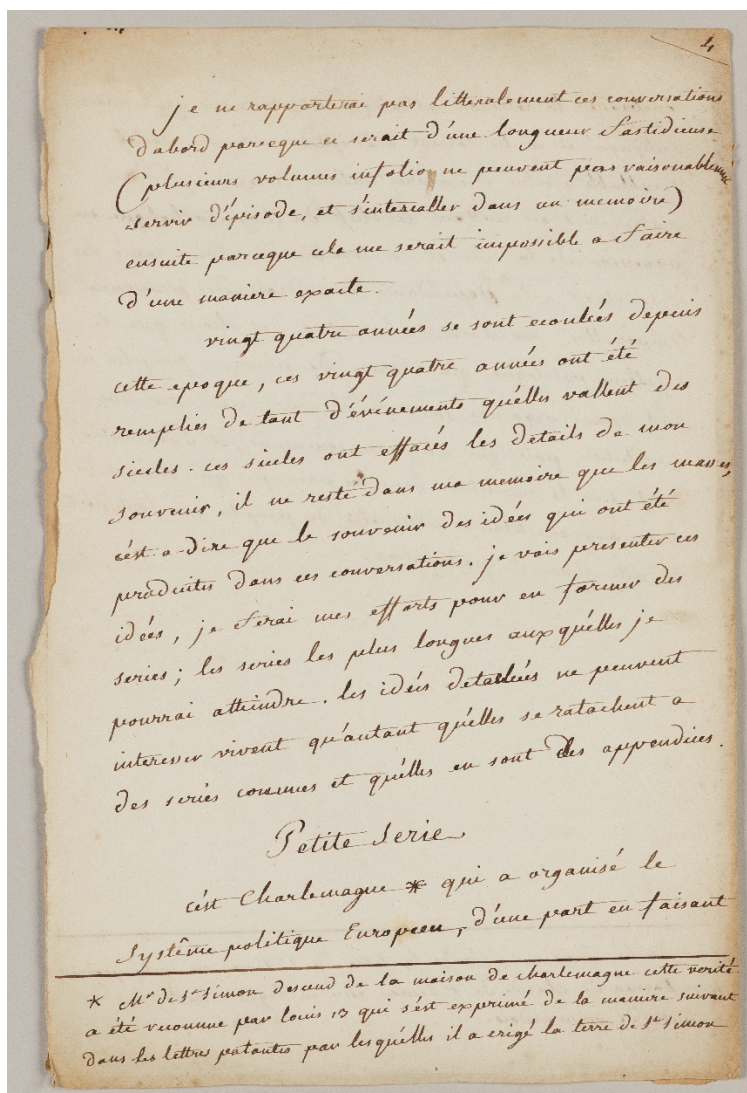 4
je ne rapporterai pas litteralement ces conversations
d'abord parceque ce serait d'une longueur fastidieuse
(plusieurs volumes infolio ne peuvent pas raisonablement
servir d'épisode, et s'intercaller dans un memoire)
ensuite parceque cela me serait impossible a faire
d'une maniere exacte.
vingt quatre années se sont ecoulées depuis
cette epoque, ces vingt quatre années ont été
remplies de tant d'événements qu'élles vallent des
siecles. ces siecles ont effacés les details de mon
souvenir, il ne reste dans ma memoire que les masses,
c'ést-a-dire que le souvenir des idées qui ont été
produites dans ces conversations. je vais presenter ces
idées, je ferai mes efforts pour en former des
series; les series les plus longues auxquélles je
pourrai atteindre. les idées detaillées ne peuvent
interesser vivent qu'autant qu'élles se ratachent a
des series connues et qu'élles en sont des appendices.
Petite Serie
c'ést Charlemagne * qui a organisé le
Systême politique Européen, d'une part en faisant
* Mr de St Simon descend de la maison de charlemagne cette verité
a été reconnue par louis 13 qui s'ést exprimé de la maniere suivant
dans les lettres patantes par lesquélles il a erigé la terre de St Simon